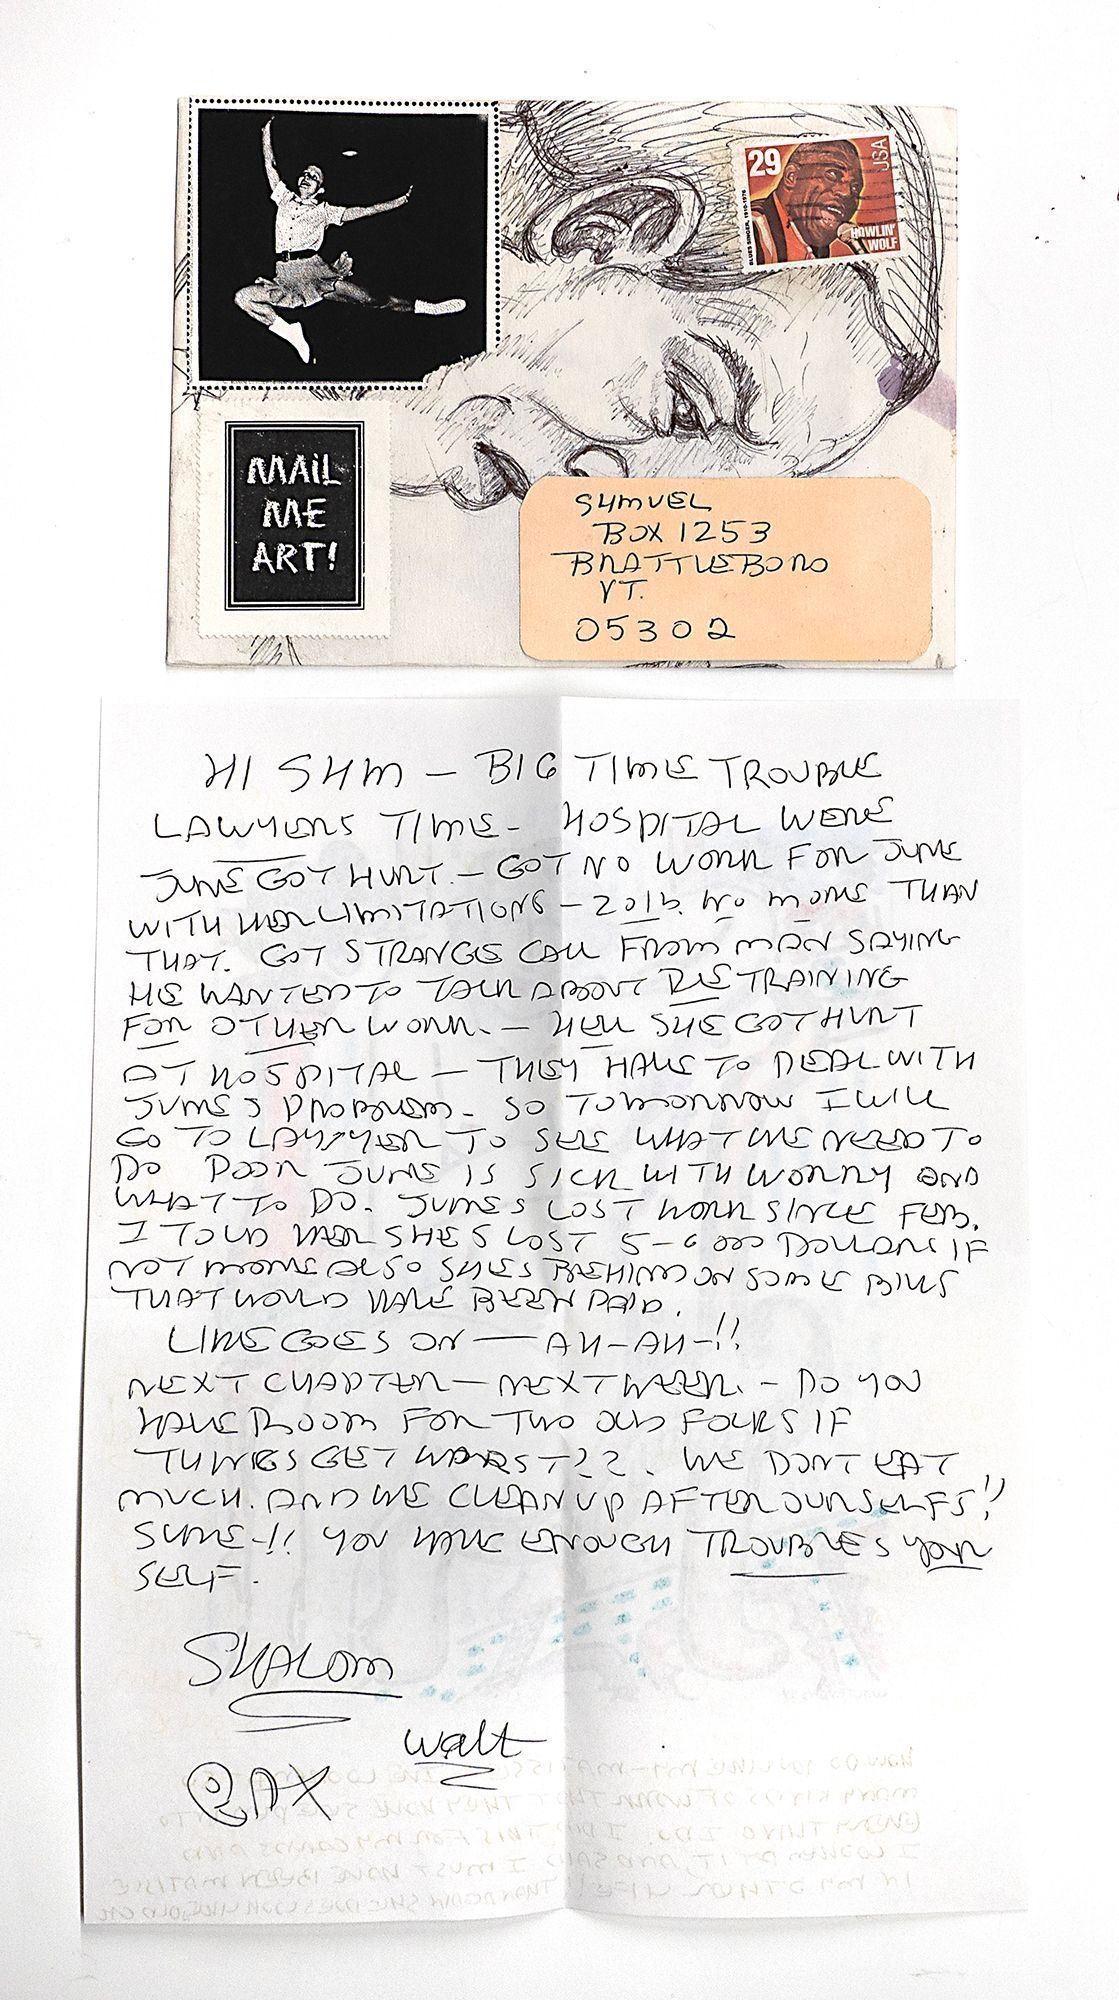 29
USA
BLUES SINGER, 1910-1976
HOWLIN'
WOLF
MAIL
ME
ART!
SHMUEL
BOX 1253
BRATTLEBORO
VT.
05302
HI SHM — BIG TIME TROUBLE
LAWYERS TIME - HOSPITAL WERE
JUNE GOT HURT. — GOT NO WORK FOR JUNE
WITH HER LIMITATIONS — 20 lb. NO MORE THAN
THAT. GOT STRANGE CALL FROM MAN SAYING
HE WANTED TO TALK ABOUT RETRAINING
FOR OTHER WORK. — HELL SHE GOT HURT
AT HOSPITAL — THEY HAVE TO DEAL WITH
JUNES PROBLEM. SO TOMORROW I WILL
GO TO LAWYER TO SEE WHAT WE NEED TO
DO POOR JUNE IS SICK WITH WORRY AND
WHAT TO DO. JUNES LOST WORK SINCE FEB.
I TOLD HER SHES LOST 5-6000 DOLLARS IF
NOT MORE ALSO SHES BEHIND ON SOME BILLS
THAT WOULD HAVE BEEN PAID.
LIFE GOES ON — AH-AH-!!
NEXT CHAPTER — NEXT WEEK. - DO YOU
HAVE ROOM FOR TWO OLD FOLKS IF
THINGS GET WORST??. WE DONT EAT
MUCH. AND WE CLEAN UP AFTER OURSELFS!!
SURE-!! YOU HAVE ENOUGH TROUBLES YOUR
SELF.
SHALOM
Walt
PAX